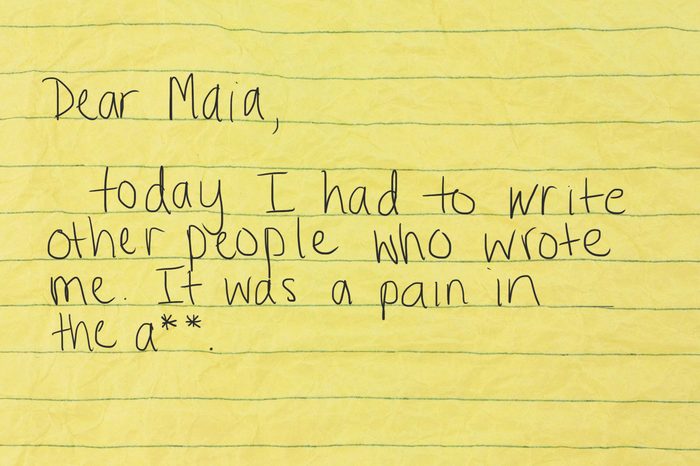 Dear Maia,
today I had to write
other people who wrote
me. It was a pain in
the a**.